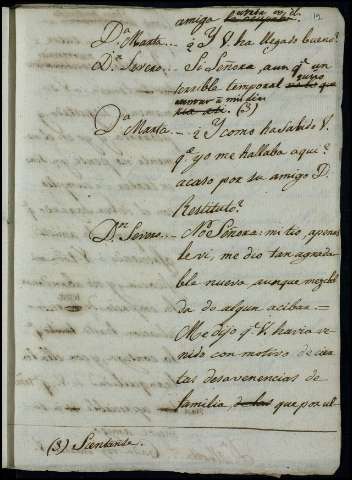 amiga
12
Dª Marta.... ¿Y V. ha llegado bueno?
Dⁿ Severo... Si Señora, aunqᵉ un
terrible temporal quiso
entrar à mi dia
(3)
Dª Marta.... ¿Y como ha sabido V.
qᵉ yo me hallaba aqui?
acaso por su amigo D.
Restituto?
Dⁿ Severo.... No Señora: mi tio, apenas
le vi, me dio tan agrada
ble nueva, aunque mezcla
da de algun acibar. =
Me dijo qᵉ V. havia ve
nido con motivo de cier
tas desavenencias de
familia, que por ul
(3) Sientanse.